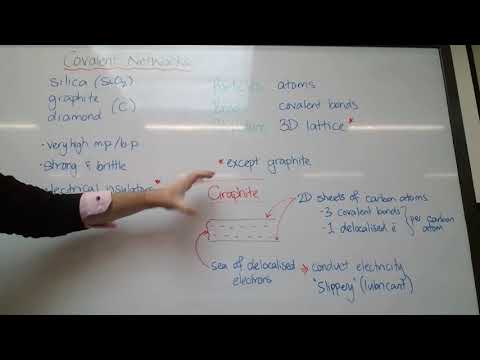 Covalent Networks
silica (SiO2)
graphite
diamond
(C)
• very high m.p/b.p
• strong & brittle
electrical insulators*
Particles atoms
Bonds covalent bonds
Structure 3D lattice*
* except graphite
Graphite
2D sheets of carbon atoms
- 3 covalent bonds
- 1 delocalised e⁻
per carbon
atom
sea of delocalised
electrons
conduct electricity
"slippery" (lubricant)